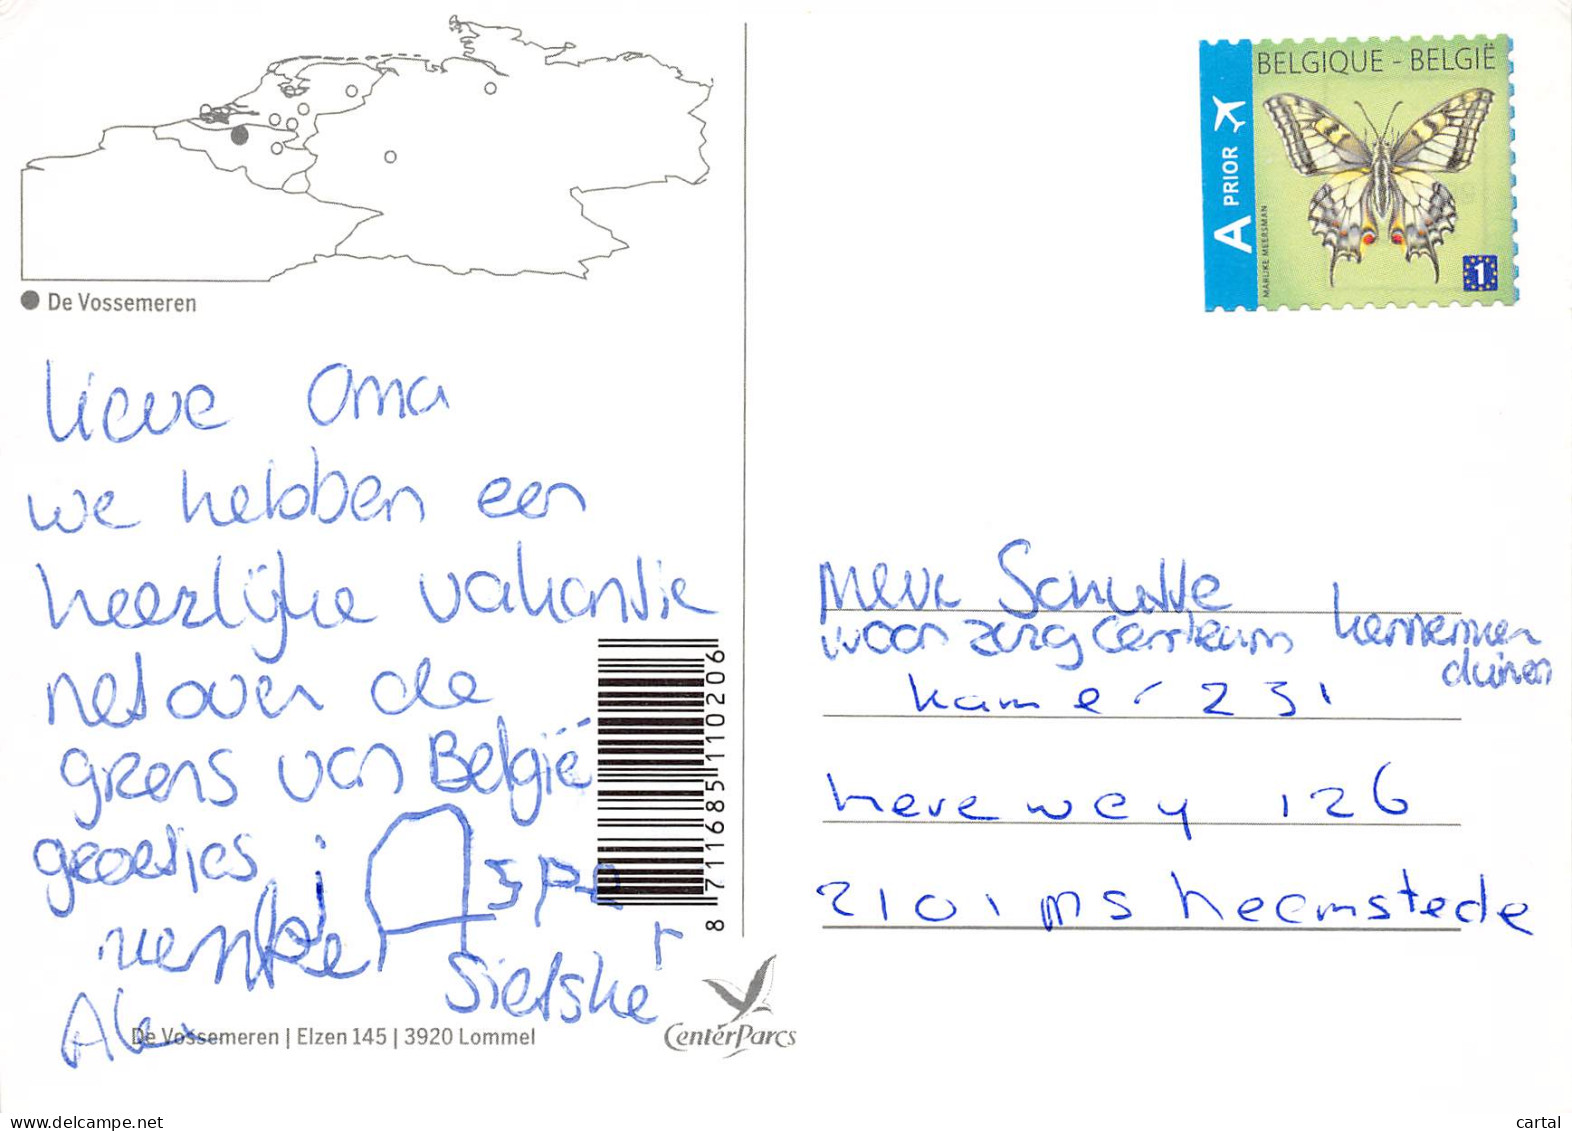 BELGIQUE - BELGIË
A PRIOR
MARIJKE MEERSMAN
1
De Vossemeren
Lieve Oma
we hebben een
heerlijke vakantie
net over de
grens van België
groetjes
Sietske
Alex
8 711685 110206
De Vossemeren | Elzen 145 | 3920 Lommel
CenterParcs
Mevr Schulte
woonzorgcentrum kennemer
duinen
kamer 231
herenweg 126
2101 MS heemstede
www.delcampe.net
cartal